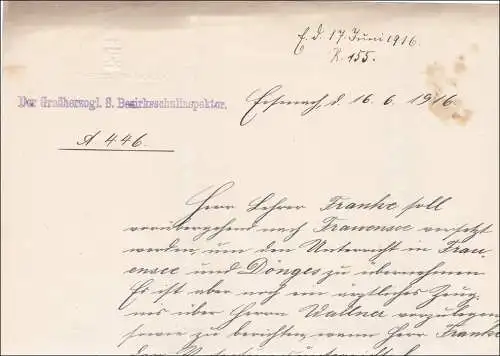 E. d. 17. Juni 1916.
K. 155.
Der Großherzogl. S. Bezirksschulinspektor.
Eisenach, d. 16. 6. 1916.
A 446.
Herr Lehrer Franke soll
vorübergehend nach Frauensee versetzt
werden, um den Unterricht in Frau
ensee und Dönges zu übernehmen
Es ist aber noch ein ärztliches Zeug
nis über Herrn Wallner vorzulegen
sowie zu berichten, wann Herr Franke